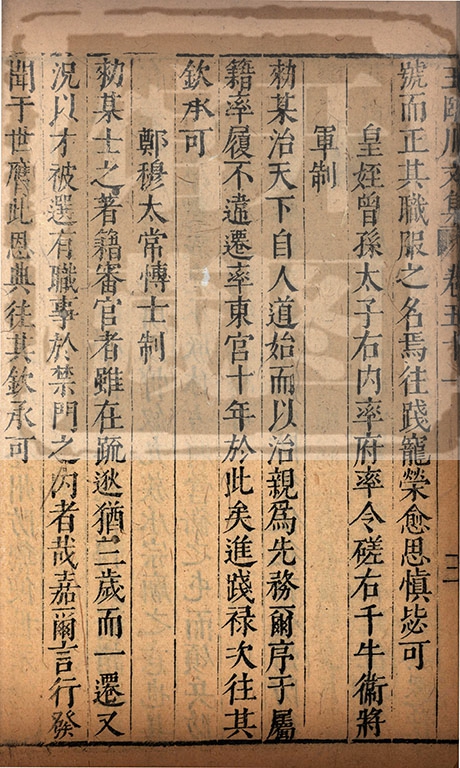 號而正其職服之名焉往踐寵榮愈思慎毖可
皇姪曾孫太子右內率府率令磋右千牛衞將
軍制
勑某治天下自人道始而以治親爲先務爾序于屬
籍率履不違遷率東宮十年於此矣進踐祿次往其
欽承可
鄭穆太常愽士制
勑某士之著籍審官者雖在疏逖猶三歲而一遷又
況以才被選有職事於禁門之內者哉嘉爾言行發
聞于世膺此恩典往其欽承可